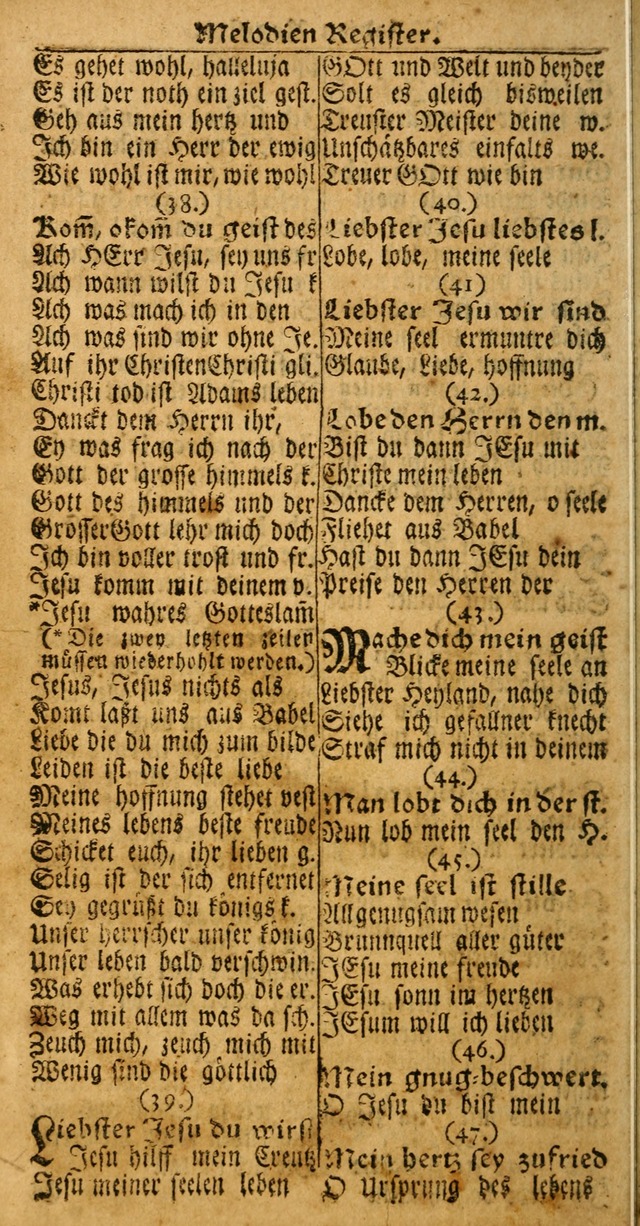 Melodien Register.
Es gehet wohl, halleluja
Es ist der noth ein ziel gest.
Geh aus mein hertz und
Ich bin ein Herr der ewig
Wie wohl ist mir, wie wohl
(38.)
Kom̃, o kom̃ du geist des
Ach HErr Jesu, sey uns fr
Ach wann wilst du Jesu k
Ach was mach ich in den
Ach was sind wir ohne Je.
Auf ihr Christen Christi gli.
Christi tod ist Adams leben
Danckt dem Herrn ihr,
Ey was frag ich nach der
Gott der grosse himmels k.
Gott des himmels und der
Grosser Gott lehr mich doch
Ich bin voller trost und fr.
Jesu komm mit deinem v.
*Jesu wahres Gotteslam̃
(* Die zwey letzten zeilen
müssen wiederhohlt werden.)
Jesus, Jesus nichts als
Komt laßt uns aus Babel
Liebe die du mich zum bilde
Leiden ist die beste liebe
Meine hoffnung stehet vest
Meines lebens beste freude
Schicket euch, ihr lieben g.
Selig ist der sich entfernet
Sey gegrüßt du königs k.
Unser herrscher unser könig
Unser leben bald verschwin.
Was erhebt sich doch die er.
Weg mit allem was da sch.
Zeuch mich, zeuch mich mit
Wenig sind die göttlich
(39.)
Liebster Jesu du wirst
Jesu hilff mein Creutz
Jesu meiner seelen leben
GOtt und Welt und beyder
Solt es gleich bisweilen
Treuster Meister deine w.
Unschätzbares einfalts we.
Treuer GOtt wie bin
(40.)
Liebster Jesu liebstes l.
Lobe, lobe, meine seele
(41)
Liebster Jesu wir sind
Meine seel ermuntre dich
Glaube, Liebe, hoffnung
(42.)
Lobe den Herrn den m.
Bist du dann JEsu mit
Christe mein leben
Dancke dem Herren, o seele
Fliehet aus Babel
Hast du dann JEsu dein
Preise den Herren der
(43.)
Mache dich mein geist
Blicke meine seele an
Liebster Heyland, nahe dich
Siehe ich gefallner knecht
Straf mich nicht in deinem
(44.)
Man lobt dich in der st.
Nun lob mein seel den H.
(45.)
Meine seel ist stille
Allgenugsam wesen
Brunnquell aller güter
JEsu meine freude
JEsu sonn im hertzen
JEsum will ich lieben
(46.)
Mein gnug-beschwert.
O Jesu du bist mein
(47.)
Mein hertz sey zufried
O Ursprung des lebens